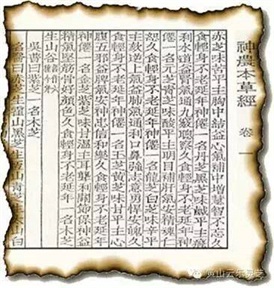 神農本草經 卷一
赤芝味苦平主胸中結益心氣補中增慧智不忘久
食輕身不老延年神僊一名丹芝黑芝味鹹平主癃
利水道益腎氣通九竅聰察久食輕身不老延年神
僊一名元芝青芝味酸平主明目補肝氣安精魂仁
恕久食輕身不老延年神僊一名龍芝白芝味辛平
主欬逆上氣益肺氣通利口鼻強志意勇悍安魄久
食輕身不老延年神僊一名玉芝黃芝味甘平主心
腹五邪益脾氣安神忠信和樂久食輕身不老延年
神僊一名金芝紫芝味甘溫主耳聾利關節保神益
精氣堅筋骨好顏色久服輕身不老延年一名木芝
生山谷
吳普曰紫芝一名木芝
名醫曰赤芝生霍山黑芝生恒山青芝生太山白